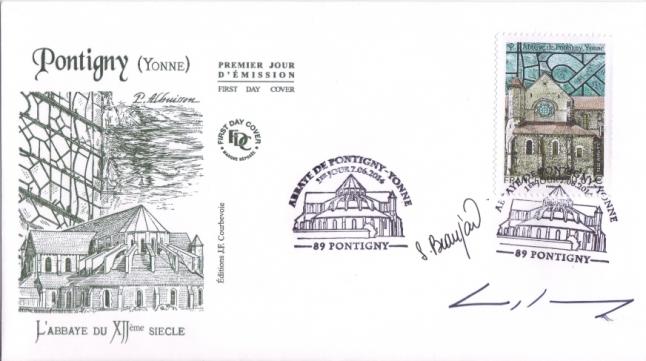 Pontigny (YONNE)
PREMIER JOUR
D'ÉMISSION
FIRST DAY COVER
P. Albuisson
FIRST DAY COVER
FDC
MARQUE DÉPOSÉE
Éditions J.F. Courbevoie
L'ABBAYE DU XIIème SIECLE
ABBAYE DE PONTIGNY-YONNE
1ER JOUR 7.06.2014
89 PONTIGNY
Abbaye de Pontigny, Yonne
1ER JOUR
89 PONTIGNY
S. Beaujard